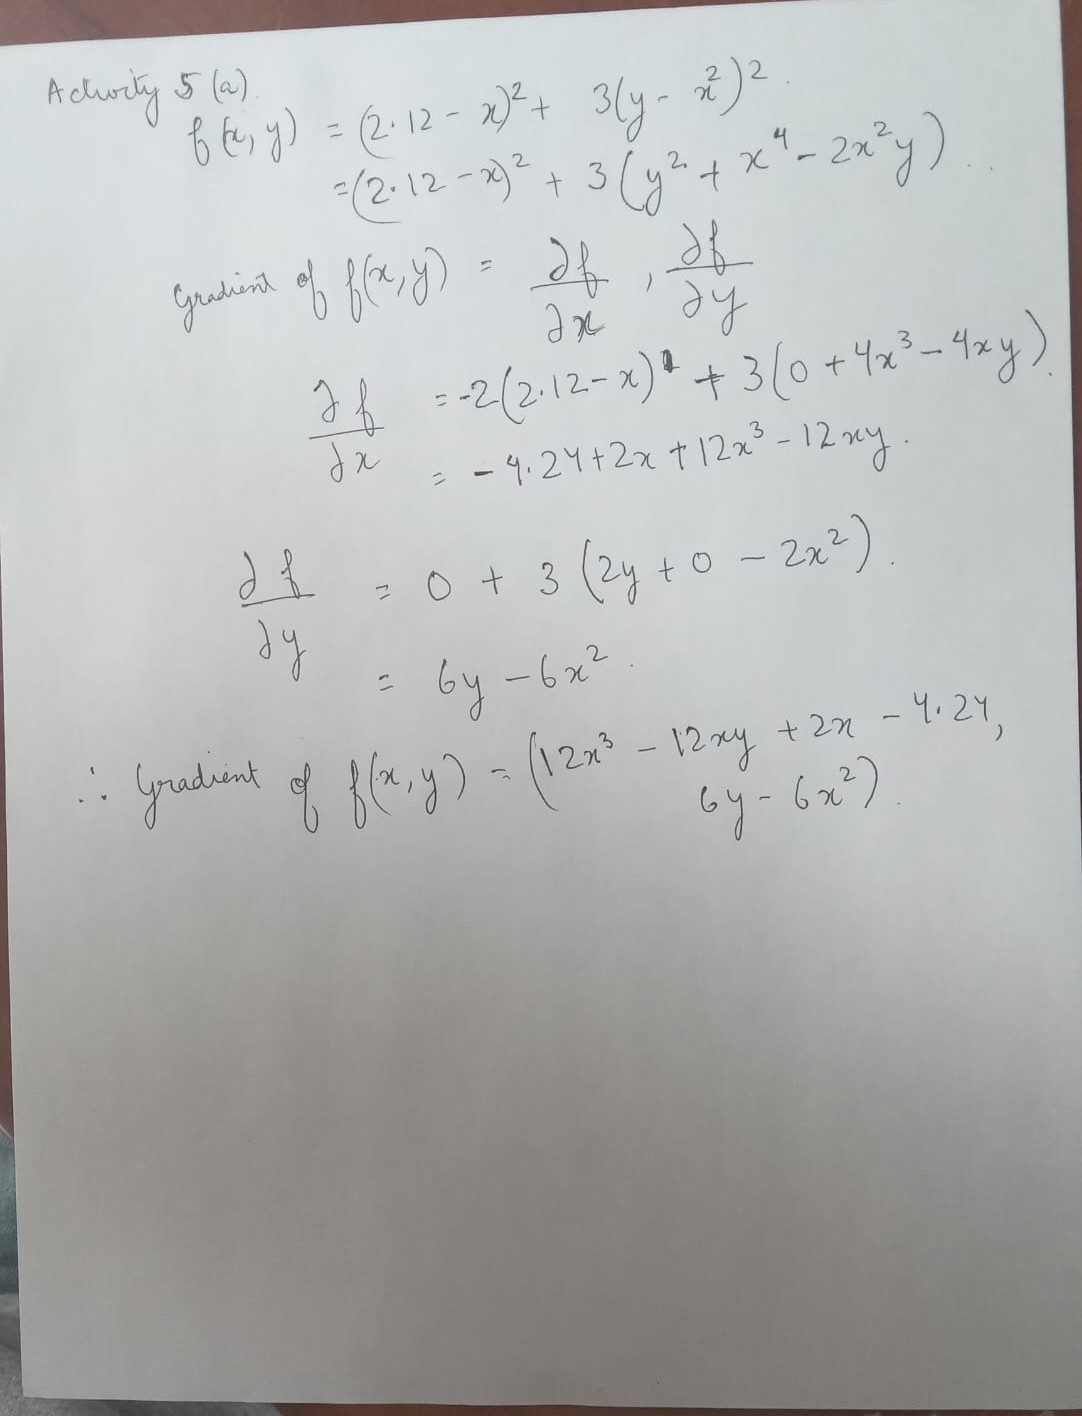 Activity 5 (a).
f(x, y) = (2.12 - x)² + 3(y - x²)².
= (2.12 - x)² + 3(y² + x⁴ - 2x²y)..
Gradient of f(x, y) = ∂f/∂x , ∂f/∂y
∂f/∂x = -2(2.12 - x)¹ + 3(0 + 4x³ - 4xy).
= -4.24 + 2x + 12x³ - 12xy.
∂f/∂y = 0 + 3 (2y + 0 - 2x²).
= 6y - 6x².
∴ Gradient of f(x, y) = (12x³ - 12xy + 2x - 4.24,
6y - 6x²).